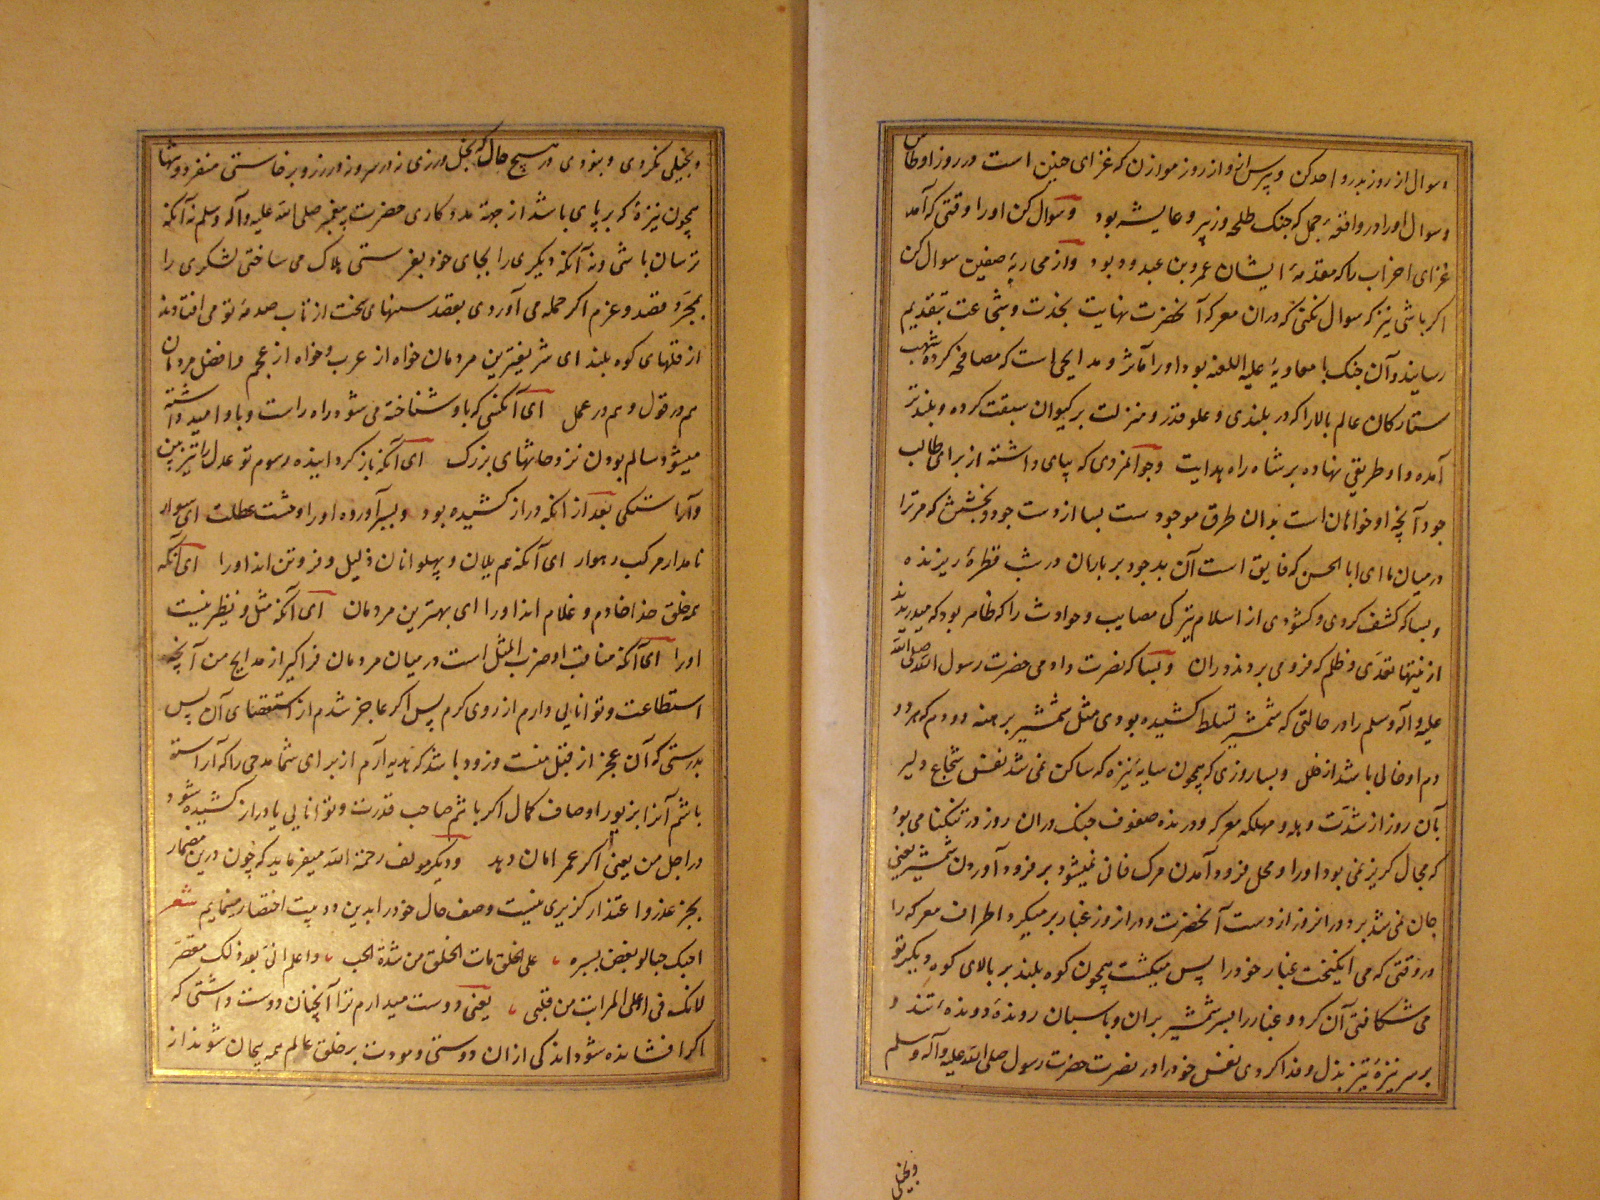 وسوال از روز بدر و احد کن و بپرس ازو از روز هوازن که غزای حنین است در روز اوطاس
وسوال او را در واقعهٔ جمل که جنک طلحه و زبیر و عایشه بود وسوال کن او را وقتی که آمد
غزای احزاب را که مقدمهٔ ایشان عمرو بن عبدود بود واز محاربهٔ صفین سوال کن
اکر باشی نیز که سوال نکنی که در ان معرکه آنحضرت نهایت نجدت و شجاعت بتقدیم
رسانید و آن جنک با معاویهٔ علیه اللعنه بود او را مآثر و مدایحی است که مصافحه کرده شهب
ستارکان عالم بالا را که در بلندی و علو قدر و منزلت بر کیوان سبقت کرده و بلندتر
آمده و او طریقی نهاده بر شاه راه هدایت وجوانمردی که بپای داشته از برای طالب
جود آنچه او خواهان است بدان طرق موجود ست بسا از دست جود و بخشش که مر ترا
در میان ما ای ابا الحسن که فایق است آن بد جود بر باران در شب قطرهٔ ریزنده
و بسا که کشف کردی و کشودی از اسلام تیرکی مصایب و حوادث را که ظاهر بود که میدرید
از نیتها تعدی و ظلم که فرو می برد در ان وبسا که نصرت دادمی حضرت رسول الله صلی الله
علیه واله وسلم را در حالتی که شمشیر تسلط کشیده بودی مثل شمشیر برهنه دو دم که هر دو
دم او خالی باشد از خلل وبسا روزی که همچون سایهٔ نیزه که ساکن نمی شد نفس شجاع دلیر
بآن روز از شدت و هله و مهلکه معرکه و درنده صفوف جنک در ان روز در تنکنا می بود
که مجال کریز نمی بود او را و محل فرود آمدن مرک فانی نمیشود بر فرود آوردن شمشیر یعنی
جان نمی شد برد در انروز از دست آنحضرت و در انروز غبار بر میکرد اطراف معرکه را
در وقتی که می انکیخت غبار خود را پس میکشت همچون کوه بلند بر بالای کوه دیکر تو
می شکافتی آن کرد و غبار را بسر شمشیر بران و باسبان رونده دونده تند و
بر سر نیزهٔ تیز بذل و فدا کردی نفس خود را در نصرت حضرت رسول صلی الله علیه واله وسلم
وبخیلی
وبخیلی نکردی و نبودی در هیچ حال که بخل ورزی نه در سر و نه در رزم و بر خاستی منفرد و تنها
همچون نیزهٔ که بر پای باشد از جهة مدد کاری حضرت پیغمبر صلی الله علیه واله وسلم نه آنکه
ترسان باشی ونه آنکه دیکری را بجای خود بفرستی هلاک می ساختی لشکری را
بمجرد قصد و عزم اکر حمله می آوردی بقصد سنهای سخت از تاب صدمهٔ تو می افتادند
از قلهای کوه بلند ای شریفترین مردمان خواه از عرب و خواه از عجم وافضل مردمان
هم در قول و هم در عمل ای آنکسی که باو شناخته می شود راه راست و باو امید داشته
میشود سالم بودن نزد حادثهای بزرک ای آنکه باز کردانیده رسوم تو عدل را تزیین
وآراستکی بعد از انکه دراز کشیده بود وبسر آورده او را وحشت عطلت ای سوار
نامدار مرکب رهوار ای آنکه هم یلان و پهلوانان ذلیل و فروتن اند او را ای آنکه
همه خلق خدا خادم و غلام اند او را ای بهترین مردمان ای آنکه مثل و نظیر نیست
او را ای آنکه مناقب او ضرب المثل است در میان مردمان فراکیر از مدایح من آنچه
استطاعت و توانایی دارم از روی کرم پس اکر عاجز شدم از استقصای آن پس
بدرستی که آن عجز از قبل منست و زود باشد که هدیه آرم از برای شما مدحی را که آراسته
باشم آنرا بزیور اوصاف کمال اکر باشم صاحب قدرت و توانایی یا دراز کشیده شود
در اجل من یعنی اکر عمر امان دهد ودیکر مولف رحمة الله میفرماید که چون درین مضمار
بجز عذر و اعتذار کزیری نیست وصف حال خود را بدین دو بیت اختصار مینمایم شعر
احبک حبا لو یفض یسیره علی الخلق مات الخلق من شدة الحب واعلم انی بعد ذلک مقصر
لانک فی اعلی المراتب من قلبی یعنی دوست میدارم ترا آنچنان دوست داشتی که
اکر افشانده شود اندکی از ان دوستی و مودت بر خلق عالم همه بیجان شوند از